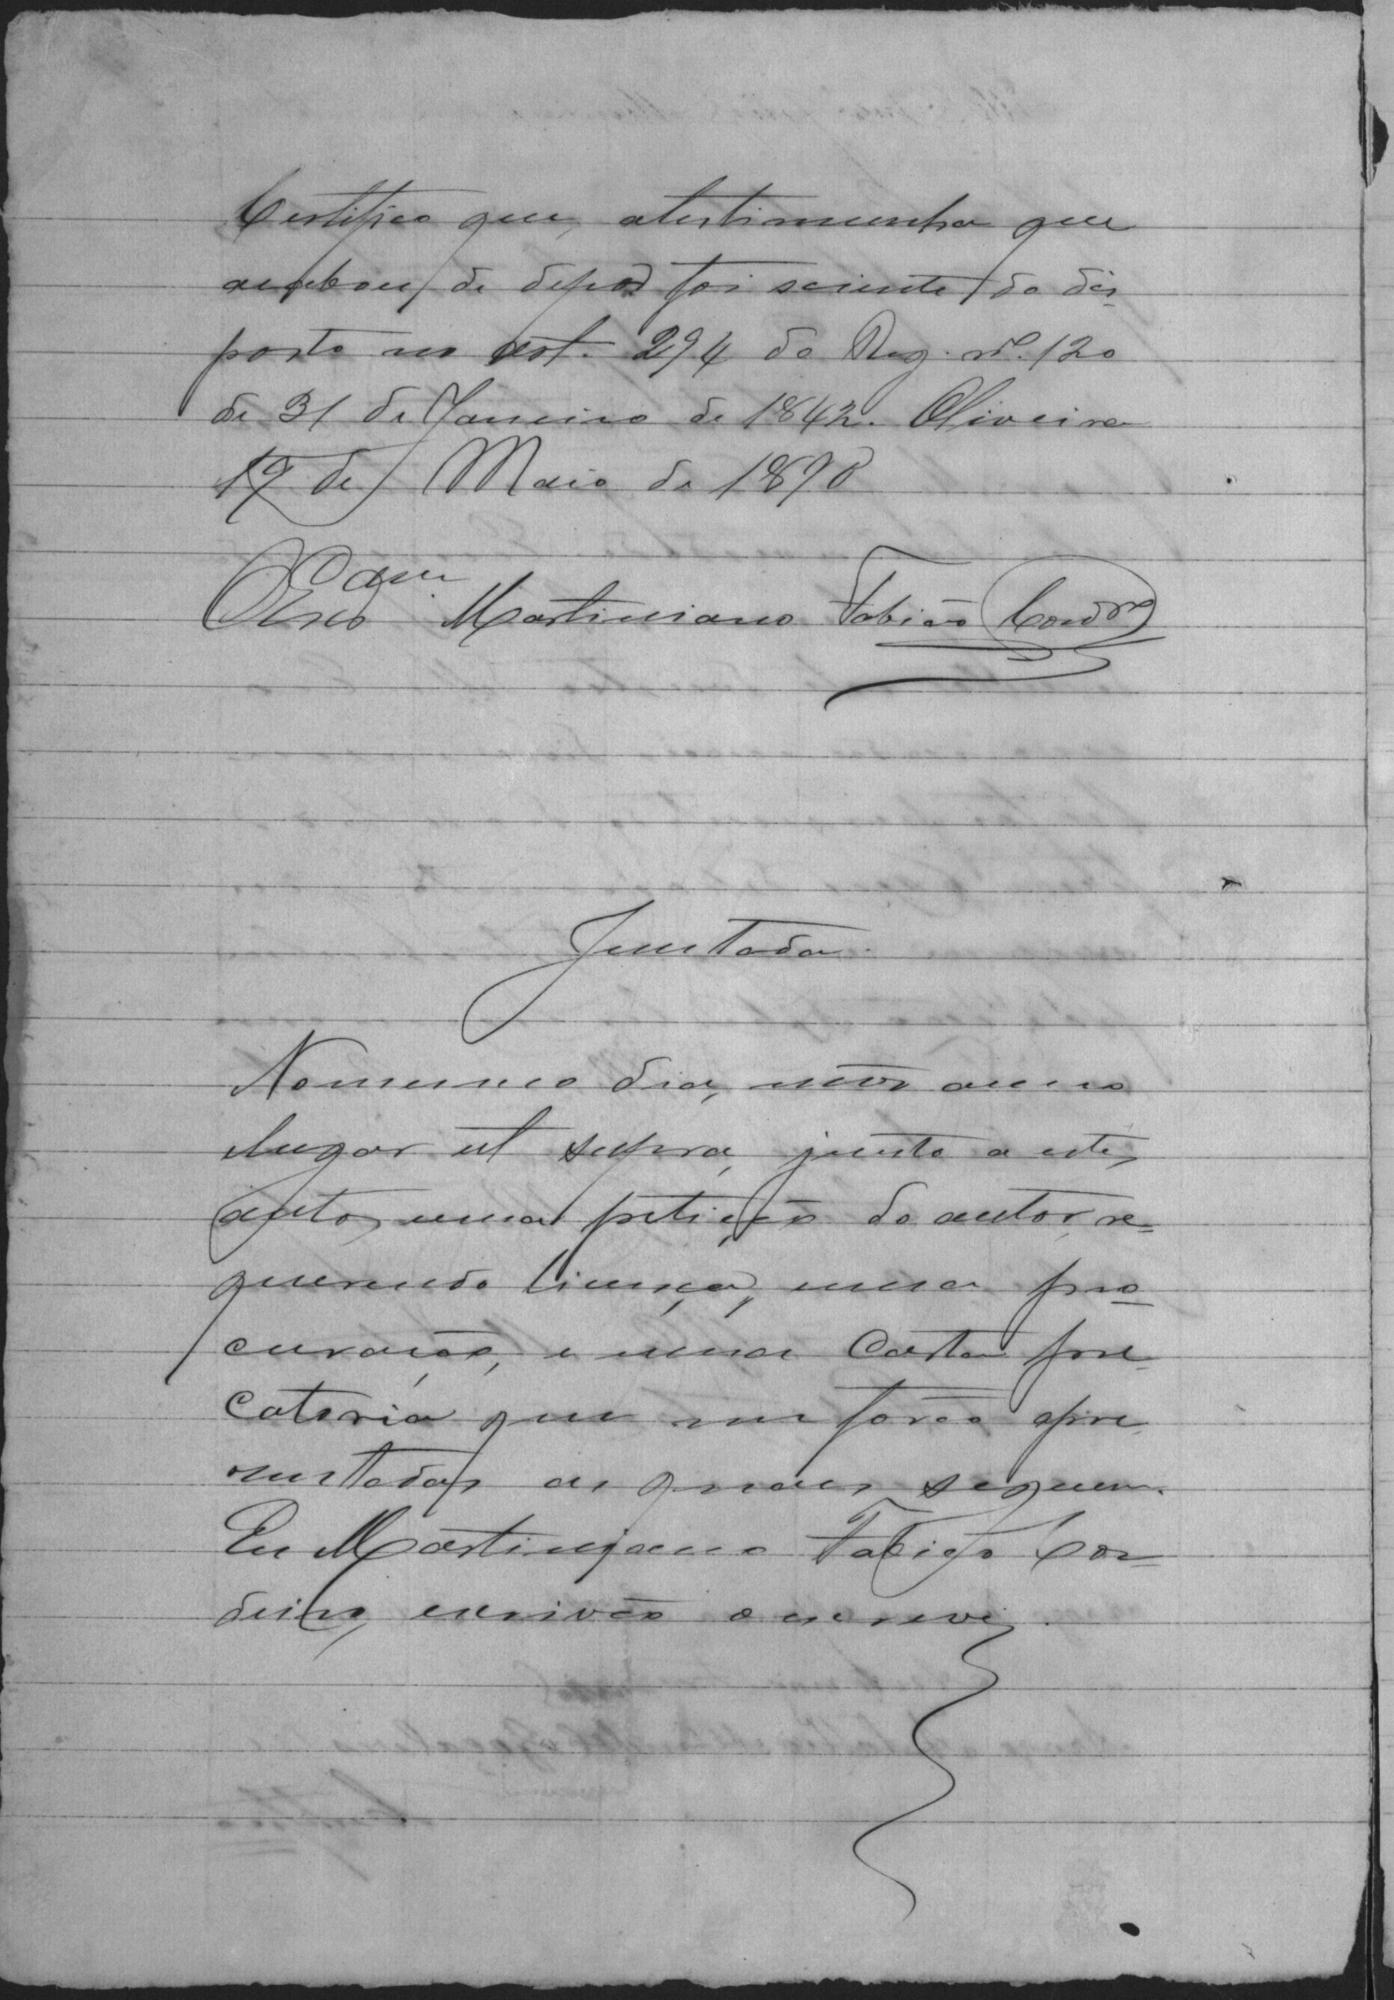 Certifico que, atestimunha que
acabou de depor foi sciente do dis-
posto no Art. 294 do Reg. nº. 120
de 31 de Janeiro de 1842. Oliveira
17 de Maio de 1890
O Escr.º Martiniano Fabião Cordrº
Juntada.
Nomesmo dia, mês anno
lugar ut supra, junto a estes
autos, uma petição do autor, re-
querendo licença, uma pro-
curação, e uma Carta pre-
catoria que me forão apre
sentadas as quaes seguem.
Eu Martiniano Fabião Cor-
deiro, escrivão o escrevi.